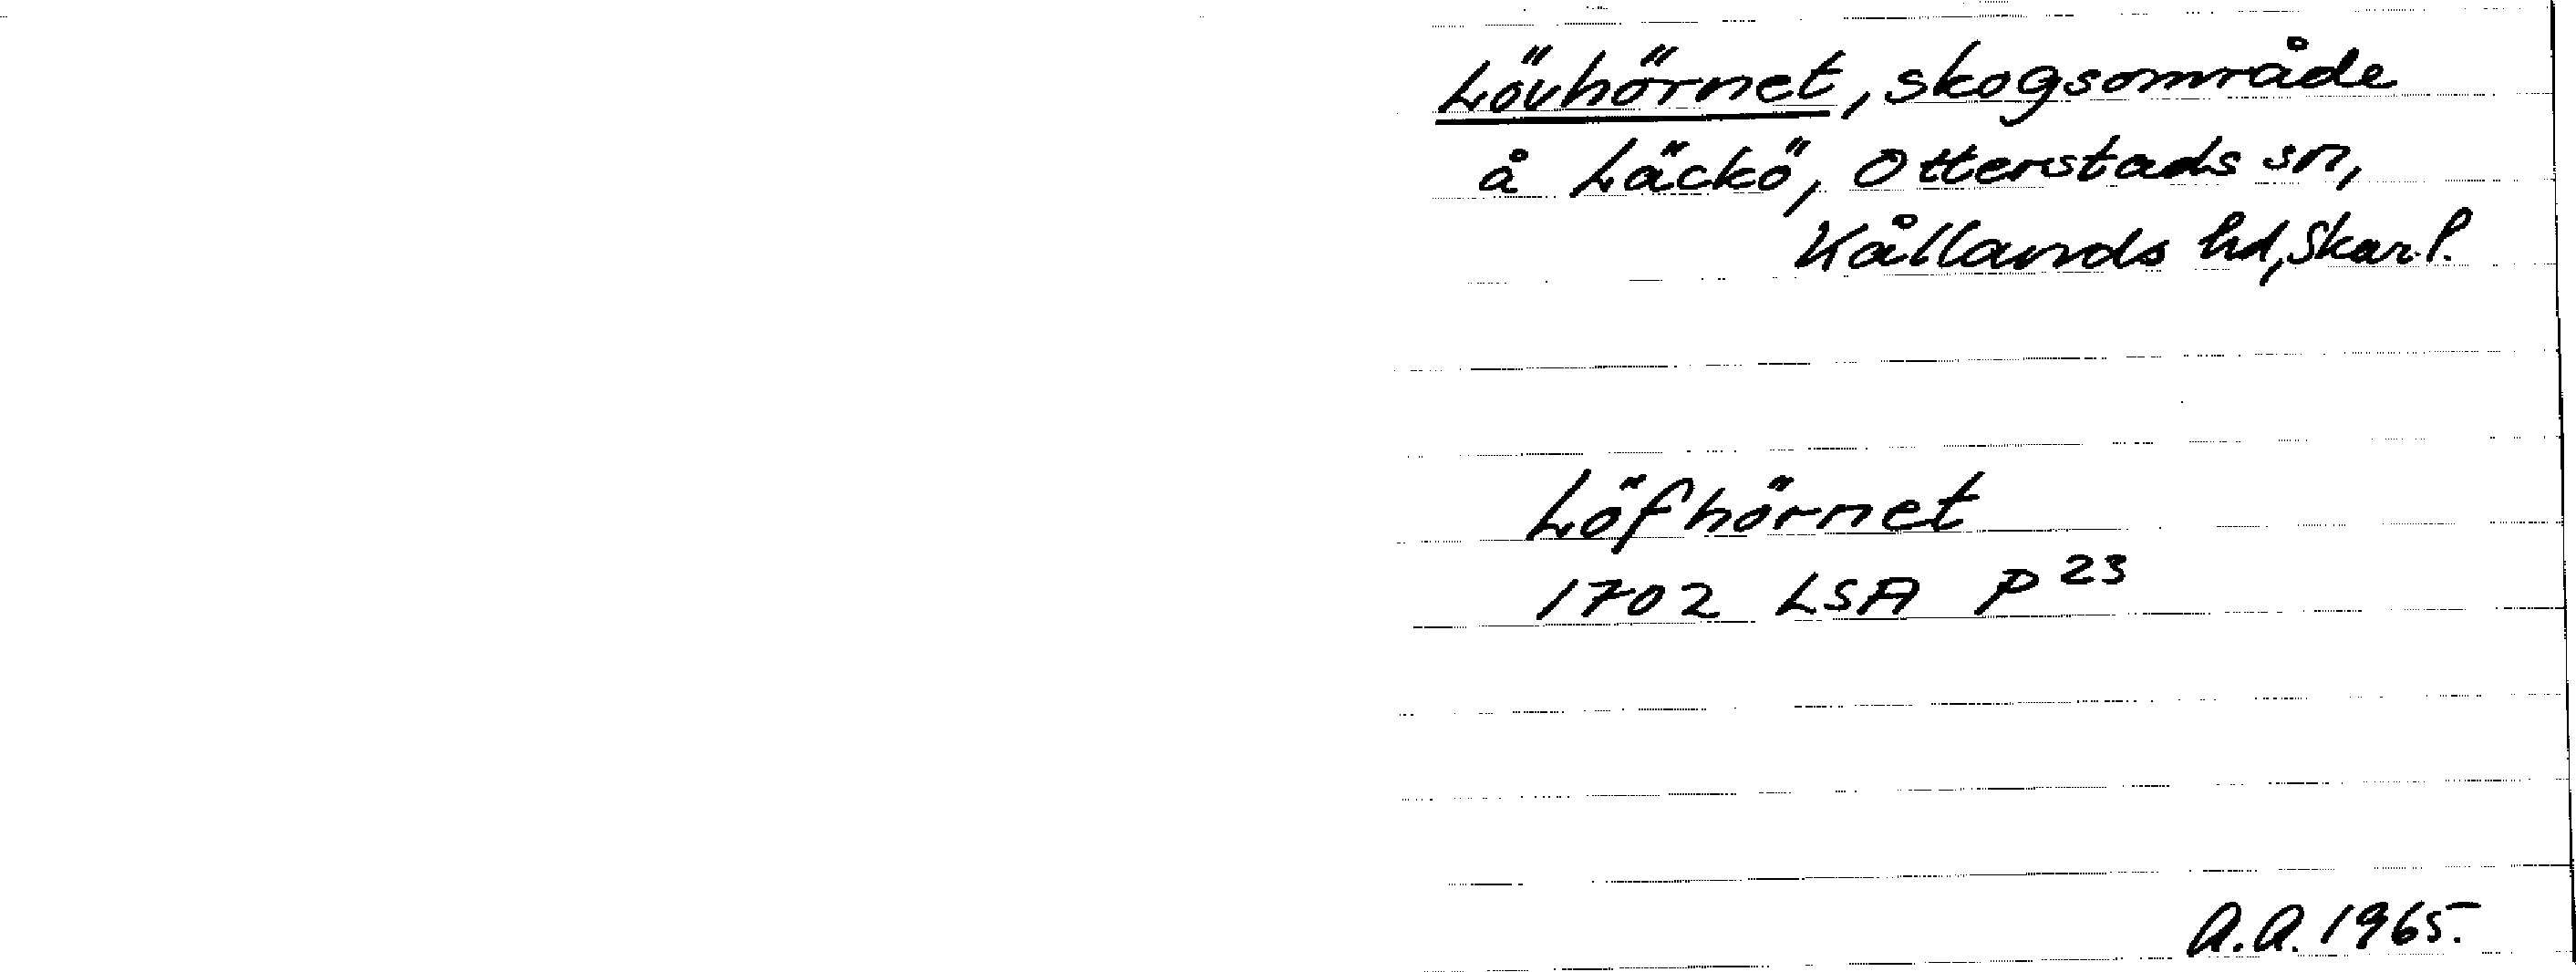 Lövhörnet, skogsområde
å Läckö, Otterstads sn,
Kållands hd, Skar.l.
Löfhörnet
1702 LSA P 23
A.A. 1965.